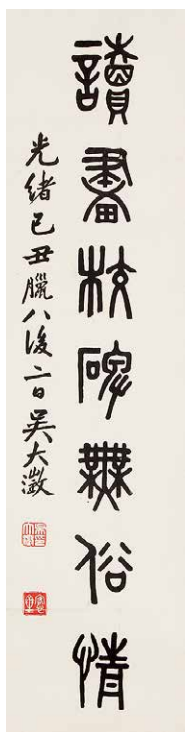 讀畫校碑無俗情
光緒己丑臘八後二日吳大澂